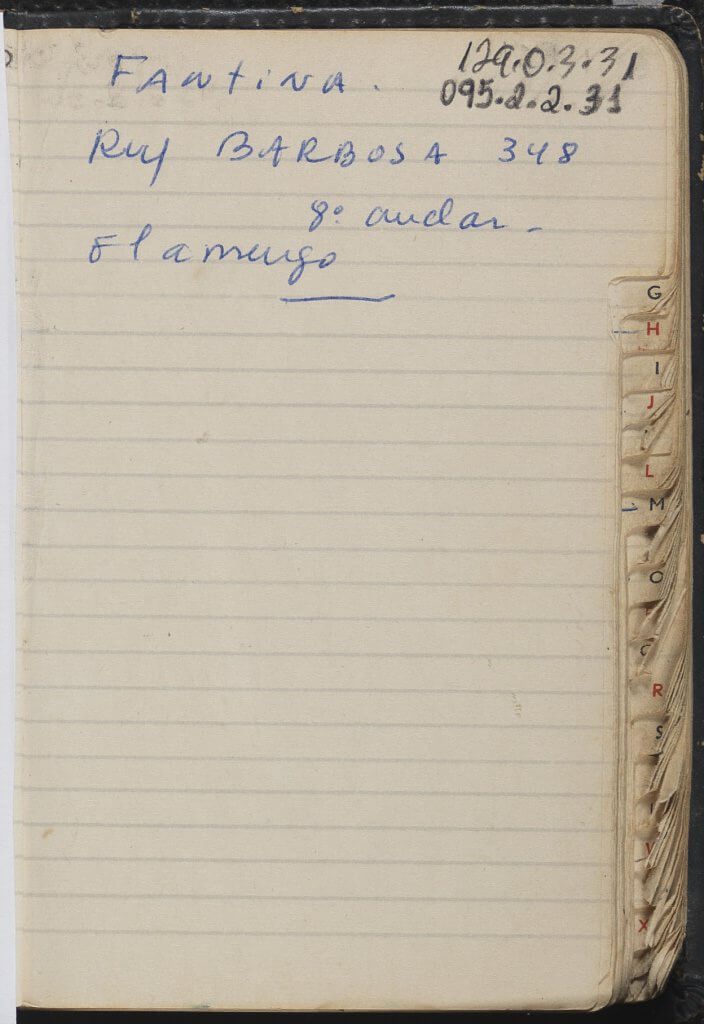 129.0.3.31
095.2.2.31
FANtiNA.
Ruy BARBOSA 348
8º andar -
Flamengo
G
H
I
J
L
M
O
R
S
X